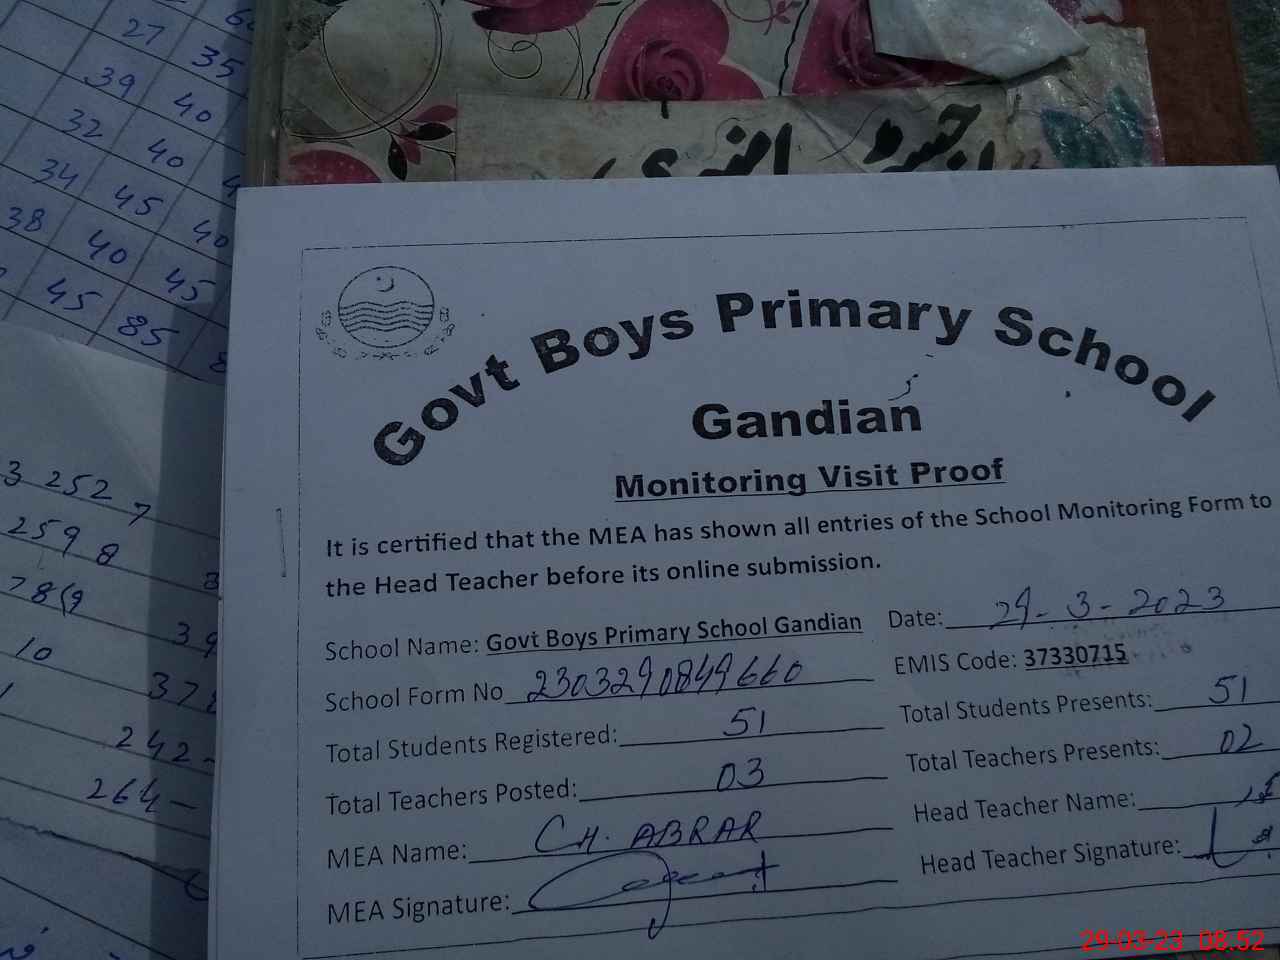 27 35
39 40
32 40
34 45 40
38 40 45
45 85
3 252 7
259 8
39
10
242
264
Govt Boys Primary School
Gandian
Monitoring Visit Proof
It is certified that the MEA has shown all entries of the School Monitoring Form to
the Head Teacher before its online submission.
School Name: Govt Boys Primary School Gandian Date: 29-3-2023
School Form No 2303290849660 EMIS Code: 37330715
Total Students Registered: 51 Total Students Presents: 51
Total Teachers Posted: 03 Total Teachers Presents: 02
MEA Name: CH. ABRAR Head Teacher Name:
MEA Signature: Head Teacher Signature:
29-03-23 08:52